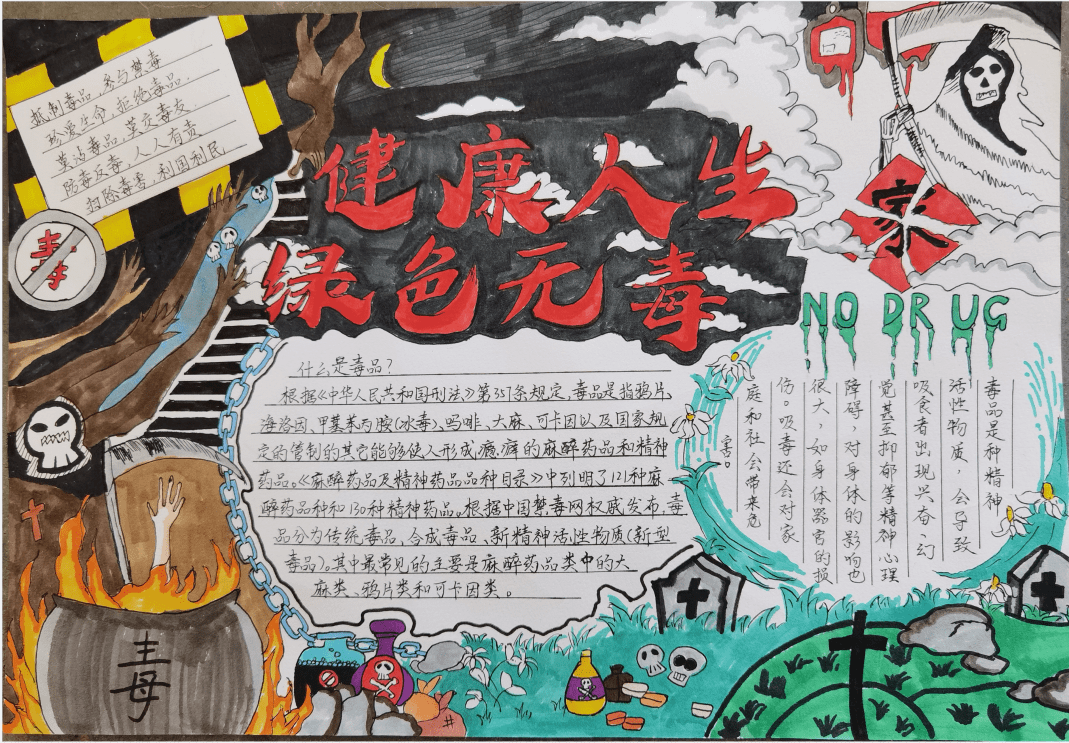 抵制毒品，参与禁毒
珍爱生命，拒绝毒品.
莫沾毒品，莫交毒友
防毒反毒，人人有责
扫除毒害，利国利民
毒
健康人生
绿色无毒
家
NO DRUG
什么是毒品？
根据《中华人民共和国刑法》第357条规定，毒品是指鸦片、
海洛因、甲基苯丙胺(冰毒)、吗啡、大麻、可卡因以及国家规
定的管制的其它能够使人形成瘾癖的麻醉药品和精神
药品。《麻醉药品及精神药品品种目录》中列明了121种麻
醉药品种和130种精神药品。根据中国禁毒网权威发布，毒
品分为传统毒品、合成毒品、新精神活性物质(新型
毒品)。其中最常见的主要是麻醉药品类中的大
麻类、鸦片类和可卡因类。
毒品是种精神
活性物质，会导致
吸食者出现兴奋、幻
觉甚至抑郁等精神心理
障碍，对身体的影响也
很大，如身体器官的损
伤。吸毒还会对家
庭和社会带来危
害。
毒